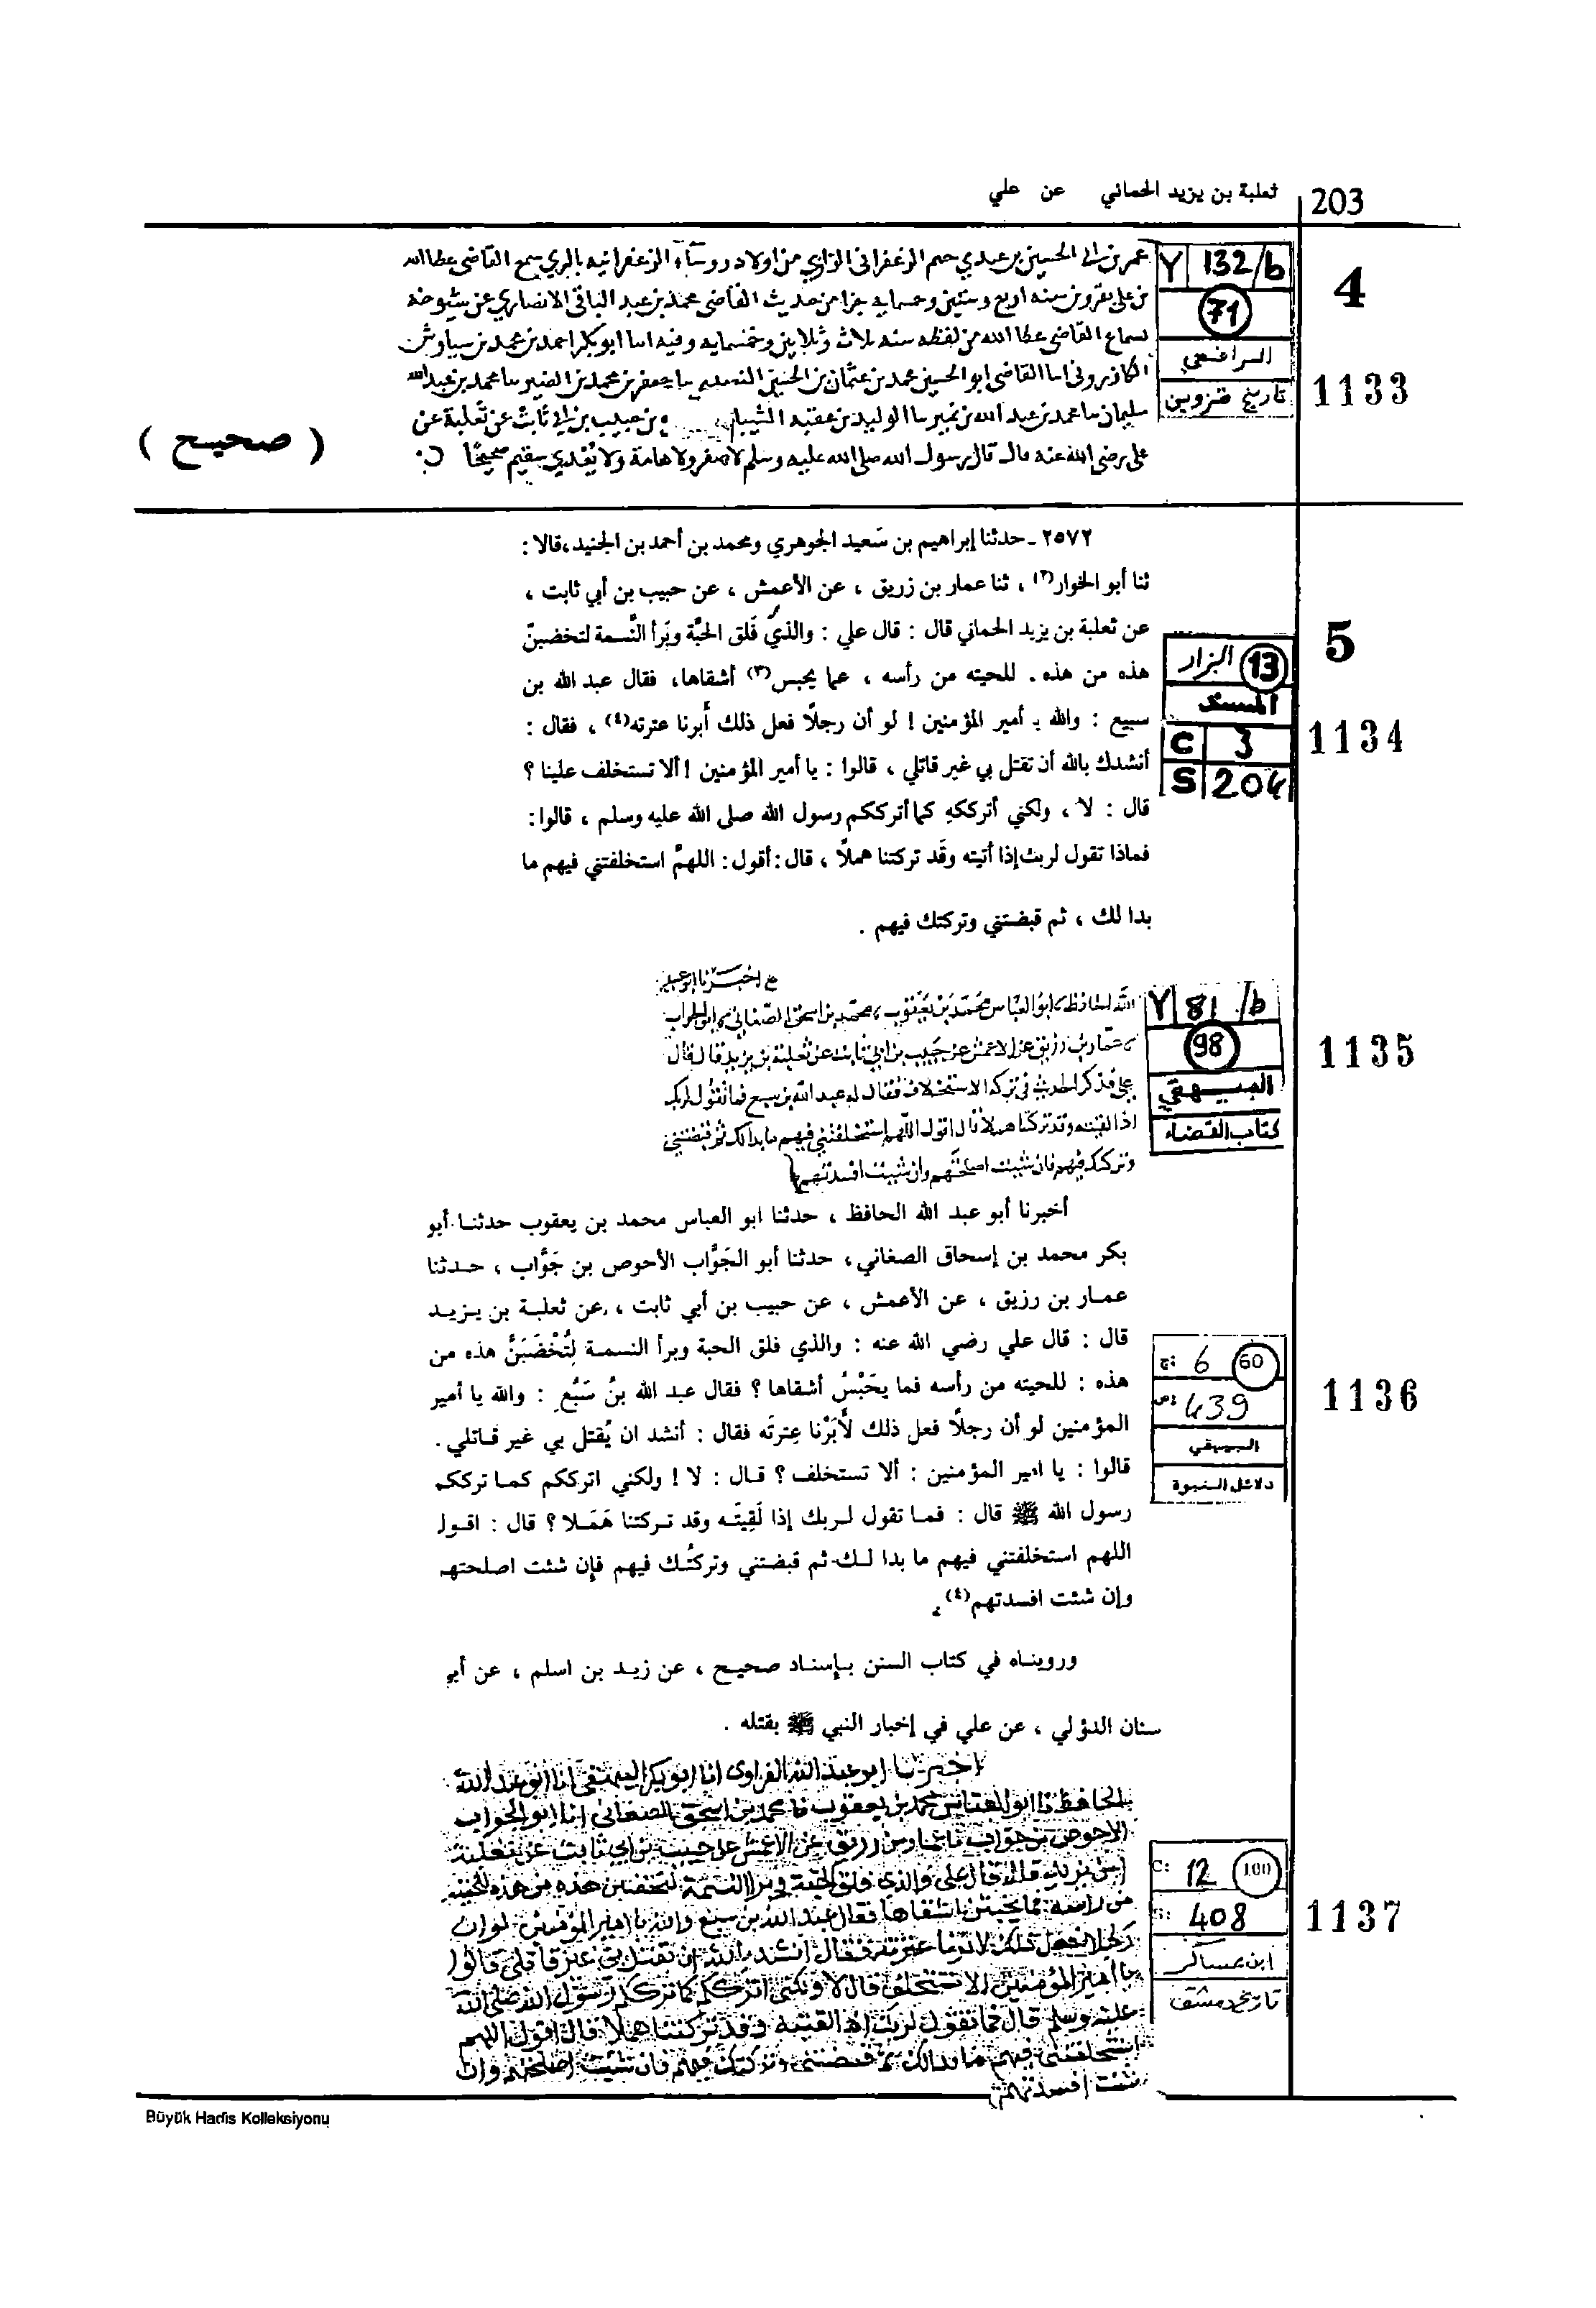 203
ثعلبة بن يزيد الحماني عن علي
4
Y 132/b
71
الرافعي
تاريخ قزوين
1133
( صحيح )
عمر بن الحسين بن الزعفراني الرازي من اولاد الزعفرانيه بالري سمع القاضي عطا الله
بن علي بقزوين سنه اربع وستين وخمسمايه جزا من حديث القاضي محمد بن عبد الباقي الانصاري عن شيوخه
بسماع القاضي عطا الله من لفظه سنه ثلاث وثلاثين وخمسمايه وفيه ابو بكر احمد بن محمد بن سياوش
الكازروني القاضي ابو الحسين محمد بن عثمان بن جعفر بن محمد بن محمد بن عبد الله
سليمان محمد بن عبد الله بن نمير الوليد بن عقبه الشيبا بن حبيب بن ابي ثابت عن ثعلبة عن
علي رضي الله عنه قال قال رسول الله صلى الله عليه وسلم لا صفر ولا هامة ولا يعدي سقيم صحيحًا
5
13 البزار
المسند
C 3
S 204
1134
٢٥٧٢ ـ حدثنا إبراهيم بن سَعيد الجوهري ومحمد بن أحمد بن الجنيد، قالا :
ثنا أبو الخوار(٢) ، ثنا عمار بن زريق ، عن الأعمش ، عن حبيب بن أبي ثابت ،
عن ثعلبة بن يزيد الحماني قال : قال علي : والذيْ فَلق الحَبَّة وبَرأ النَّسمة لتخضبنّ
هذه من هذه . للحيته من رأسه ، عما يحبس(٣) أشقاها، فقال عبد الله بن
سبيع : والله يـ أمير المؤمنين ! لو أن رجلًا فعل ذلك أبرنا عترته(٤) ، فقال :
أنشدك بالله أن تقتل بي غير قاتلي ، قالوا : يا أمير المؤمنين ! ألا تستخلف علينا ؟
قال : لا ، ولكني أترككم كما أترككم رسول الله صلى الله عليه وسلم ، قالوا :
فماذا تقول لربك إذا أتيته وقَد تركتنا هملًا ، قال : أقول : اللهمّ استخلفتني فيهم ما
بدا لك ، ثم قبضتني وتركتك فيهم .
Y 81 /b
98
البيهقي
كتاب القضاء
1135
اخبرنا ابو عبد
الله الحافظ ابو العباس محمد بن يعقوب محمد بن اسحق الصغاني ابو الجواب
عمار بن رزيق عن الاعمش عن حبيب بن ابي ثابت عن ثعلبة بن يزيد قال قال
علي فذكر الحديث في تركه الاستخلاف فقال له عبد الله بن سبيع فما تقول لربك
اذا لقيته وقد تركتنا هملا قال اقول اللهم استخلفتني فيهم ما بدا لك ثم قبضتني
وتركتك فيهم فان شئت اصلحتهم وان شئت افسدتهم
ج: 6 60
ص: 439
البيهقي
دلائل النبوة
1136
أخبرنا أبو عبد الله الحافظ ، حدثنا ابو العباس محمد بن يعقوب حدثنا أبو
بكر محمد بن إسحاق الصغاني، حدثنا أبو الجَوَّاب الأحوص بن جَوَّاب ، حدثنا
عمار بن رزيق ، عن الأعمش ، عن حبيب بن أبي ثابت ، عن ثعلبة بن يزيد
قال : قال علي رضي الله عنه : والذي فلق الحبة وبرأ النسمة لَتُخْضَبَنَّ هذه من
هذه : للحيته من رأسه فما يَحْبْسُ أشقاها ؟ فقال عبد الله بنُ سَبُعٍ : والله يا أمير
المؤمنين لو أن رجلًا فعل ذلك لَأَبَرْنا عِترتَه فقال : أنشد ان يُقتل بي غير قاتلي .
قالوا : يا امير المؤمنين : ألا تستخلف ؟ قال : لا ! ولكني اترككم كما ترككم
رسول الله ﷺ قال : فما تقول لربك إذا لَقِيتَه وقد تركتنا هَمَلا ؟ قال : اقول
اللهم استخلفتني فيهم ما بدا لك ثم قبضتني وتركتُك فيهم فإن شئت اصلحتهـ
وإن شئت افسدتهم(٤) .
ورويناه في كتاب السنن بإسناد صحيح ، عن زيد بن اسلم ، عن أبي
سنان الدؤلي ، عن علي في إخبار النبي ﷺ بقتله .
C: 12 100
S: 408
ابن عساكر
تاريخ دمشق
1137
اخبرنا ابو عبد الله الفراوى انا ابو بكر البيهقي انا ابو عبد الله
الحافظ نا ابو العباس محمد بن يعقوب نا محمد بن اسحق الصغاني انا ابو الجواب
الاحوص بن جواب نا عمار بن رزيق عن الاعمش عن حبيب بن ابي ثابت عن ثعلبة
ابن يزيد قال قال علي والذي فلق الحبة وبرا النسمة لتخضبن هذه من هذه للحيته
من راسه فما يحبس اشقاها فقال عبد الله بن سبع والله يا امير المؤمنين لو ان
رجلا فعل ذلك لابرنا عترته فقال انشد بالله ان تقتل بي غير قاتلي قالوا
يا امير المؤمنين الا تستخلف قال لا ولكني اترككم كما ترككم رسول الله صلى الله
عليه وسلم قال فما تقول لربك اذا لقيته وقد تركتنا هملا قال اقول اللهم
استخلفتني فيهم ما بدا لك ثم قبضتني وتركتك فيهم فان شئت اصلحتهم وان
شئت افسدتهم
Büyük Hadis Kolleksiyonu